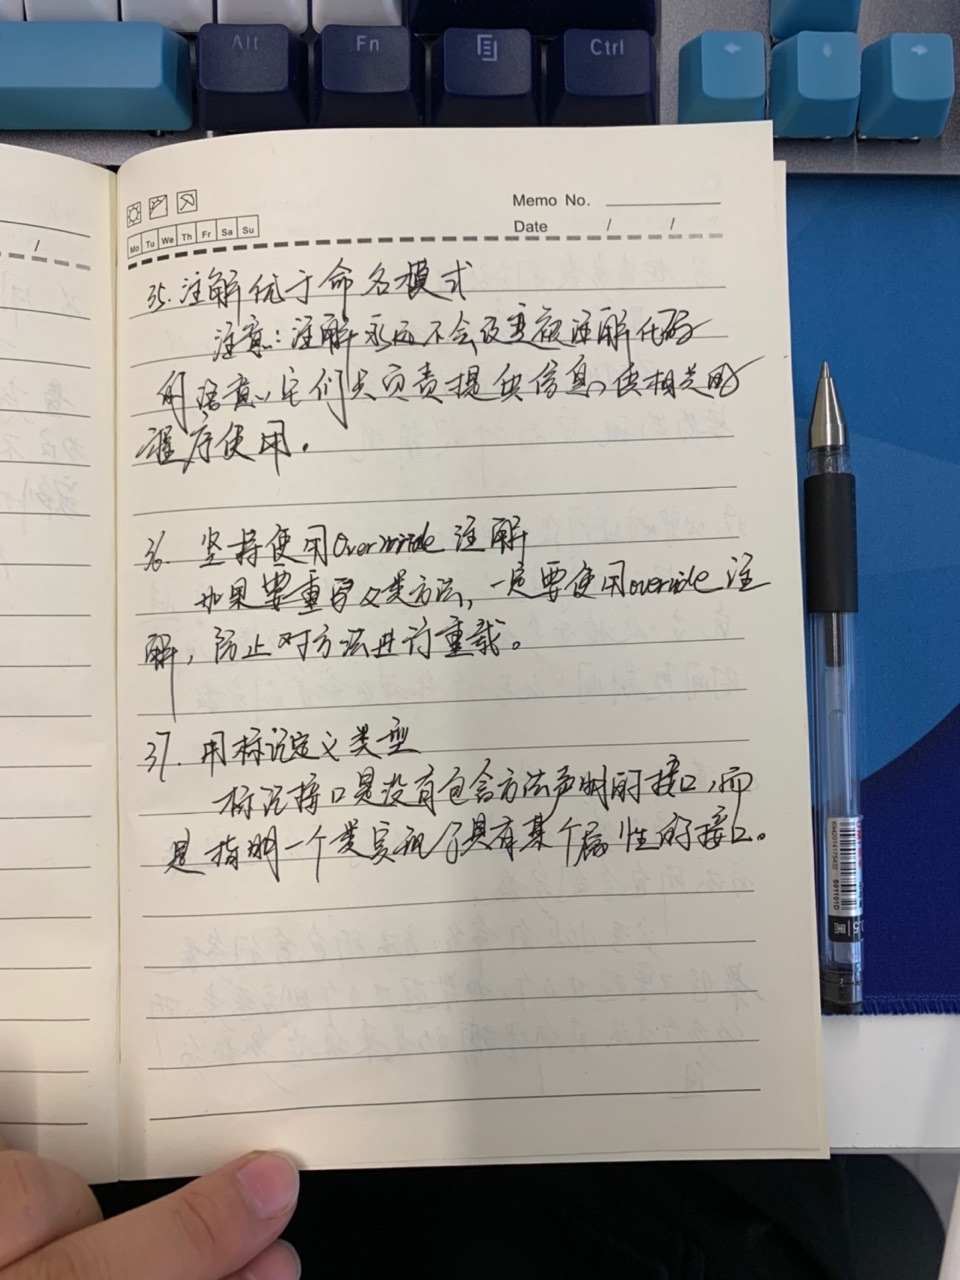 Alt Fn Ctrl
Memo No.
Date / /
Mo Tu We Th Fr Sa Su
35. 注解优于命名模式
注意：注解永远不会改变被注解代码
的语意，它们只负责提供信息，供相关的
程序使用。
36. 坚持使用Override 注解
如果要重写父类方法，一定要使用override 注
解，防止对方法进行重载。
37. 用标记定义类型
标记接口是没有包含方法声明的接口，而
是指明一个类实现了具有某个属性的接口。